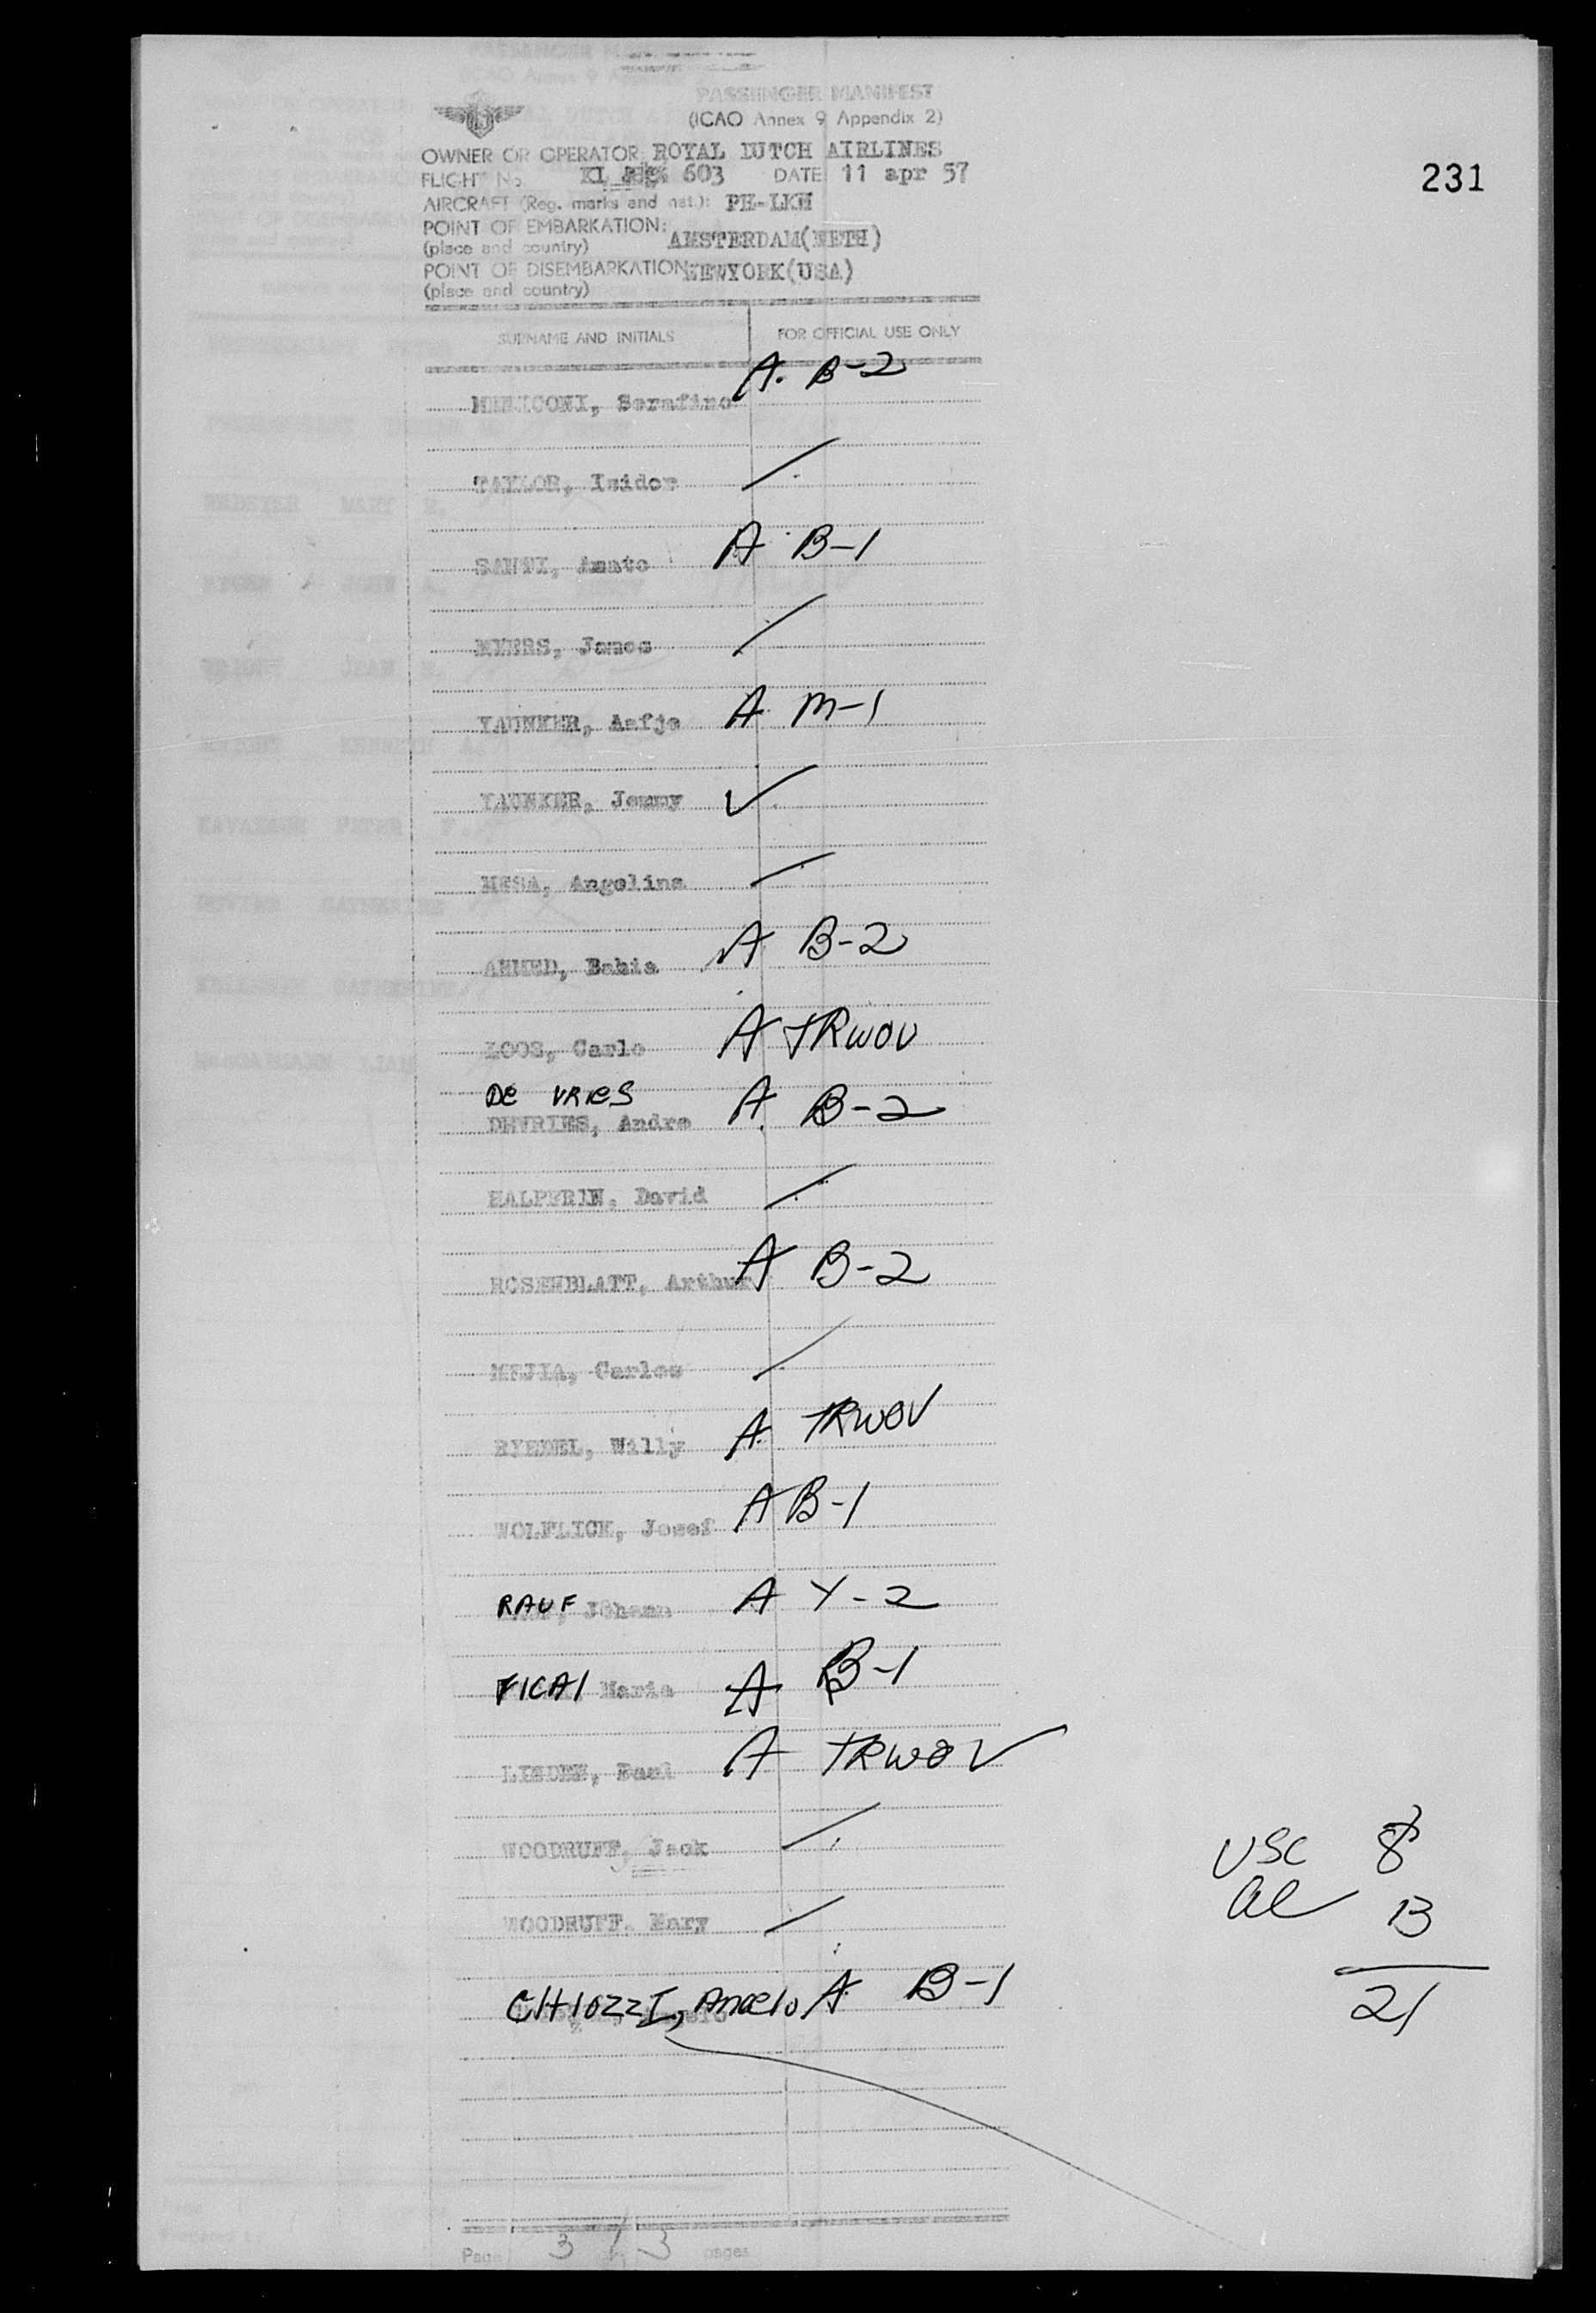 PASSENGER MANIFEST
(ICAO Annex 9 Appendix 2)
OWNER OR OPERATOR: ROYAL DUTCH AIRLINES
231
FLIGHT No. KL 603 DATE: 11 apr 57
AIRCRAFT (Reg. marks and nat.): PH-LKM
POINT OF EMBARKATION:
(place and country) AMSTERDAM(NETH)
POINT OF DISEMBARKATION: NEWYORK(USA)
(place and country)
SURNAME AND INITIALS FOR OFFICIAL USE ONLY
Serafino A. B-2
TAYLOR, Isidor
SANTI, Amato A B-1
MYERS, James
YAUNKER, Aafje A M-1
YAUNKER, Jenny ✓
MESA, Angelina
AHMED, Bahia A B-2
LOOS, Carlo A TRWOV
De VRIES A B-2
DEVRIES, Andre
HALPERIN, David
ROSENBLATT, Arthur A B-2
MEJIA, Carlos
Willy A TRWOV
WOLFLICK, Josef A B-1
RAUF, Johann A Y-2
FICAI Maria A B-1
LINDEN, Paul A TRWOV
WOODRUFF, Jack
USC 8
al 13
WOODRUFF, Mary
21
CHIOZZI, Angelo A B-1
Page 3 / 3 pages